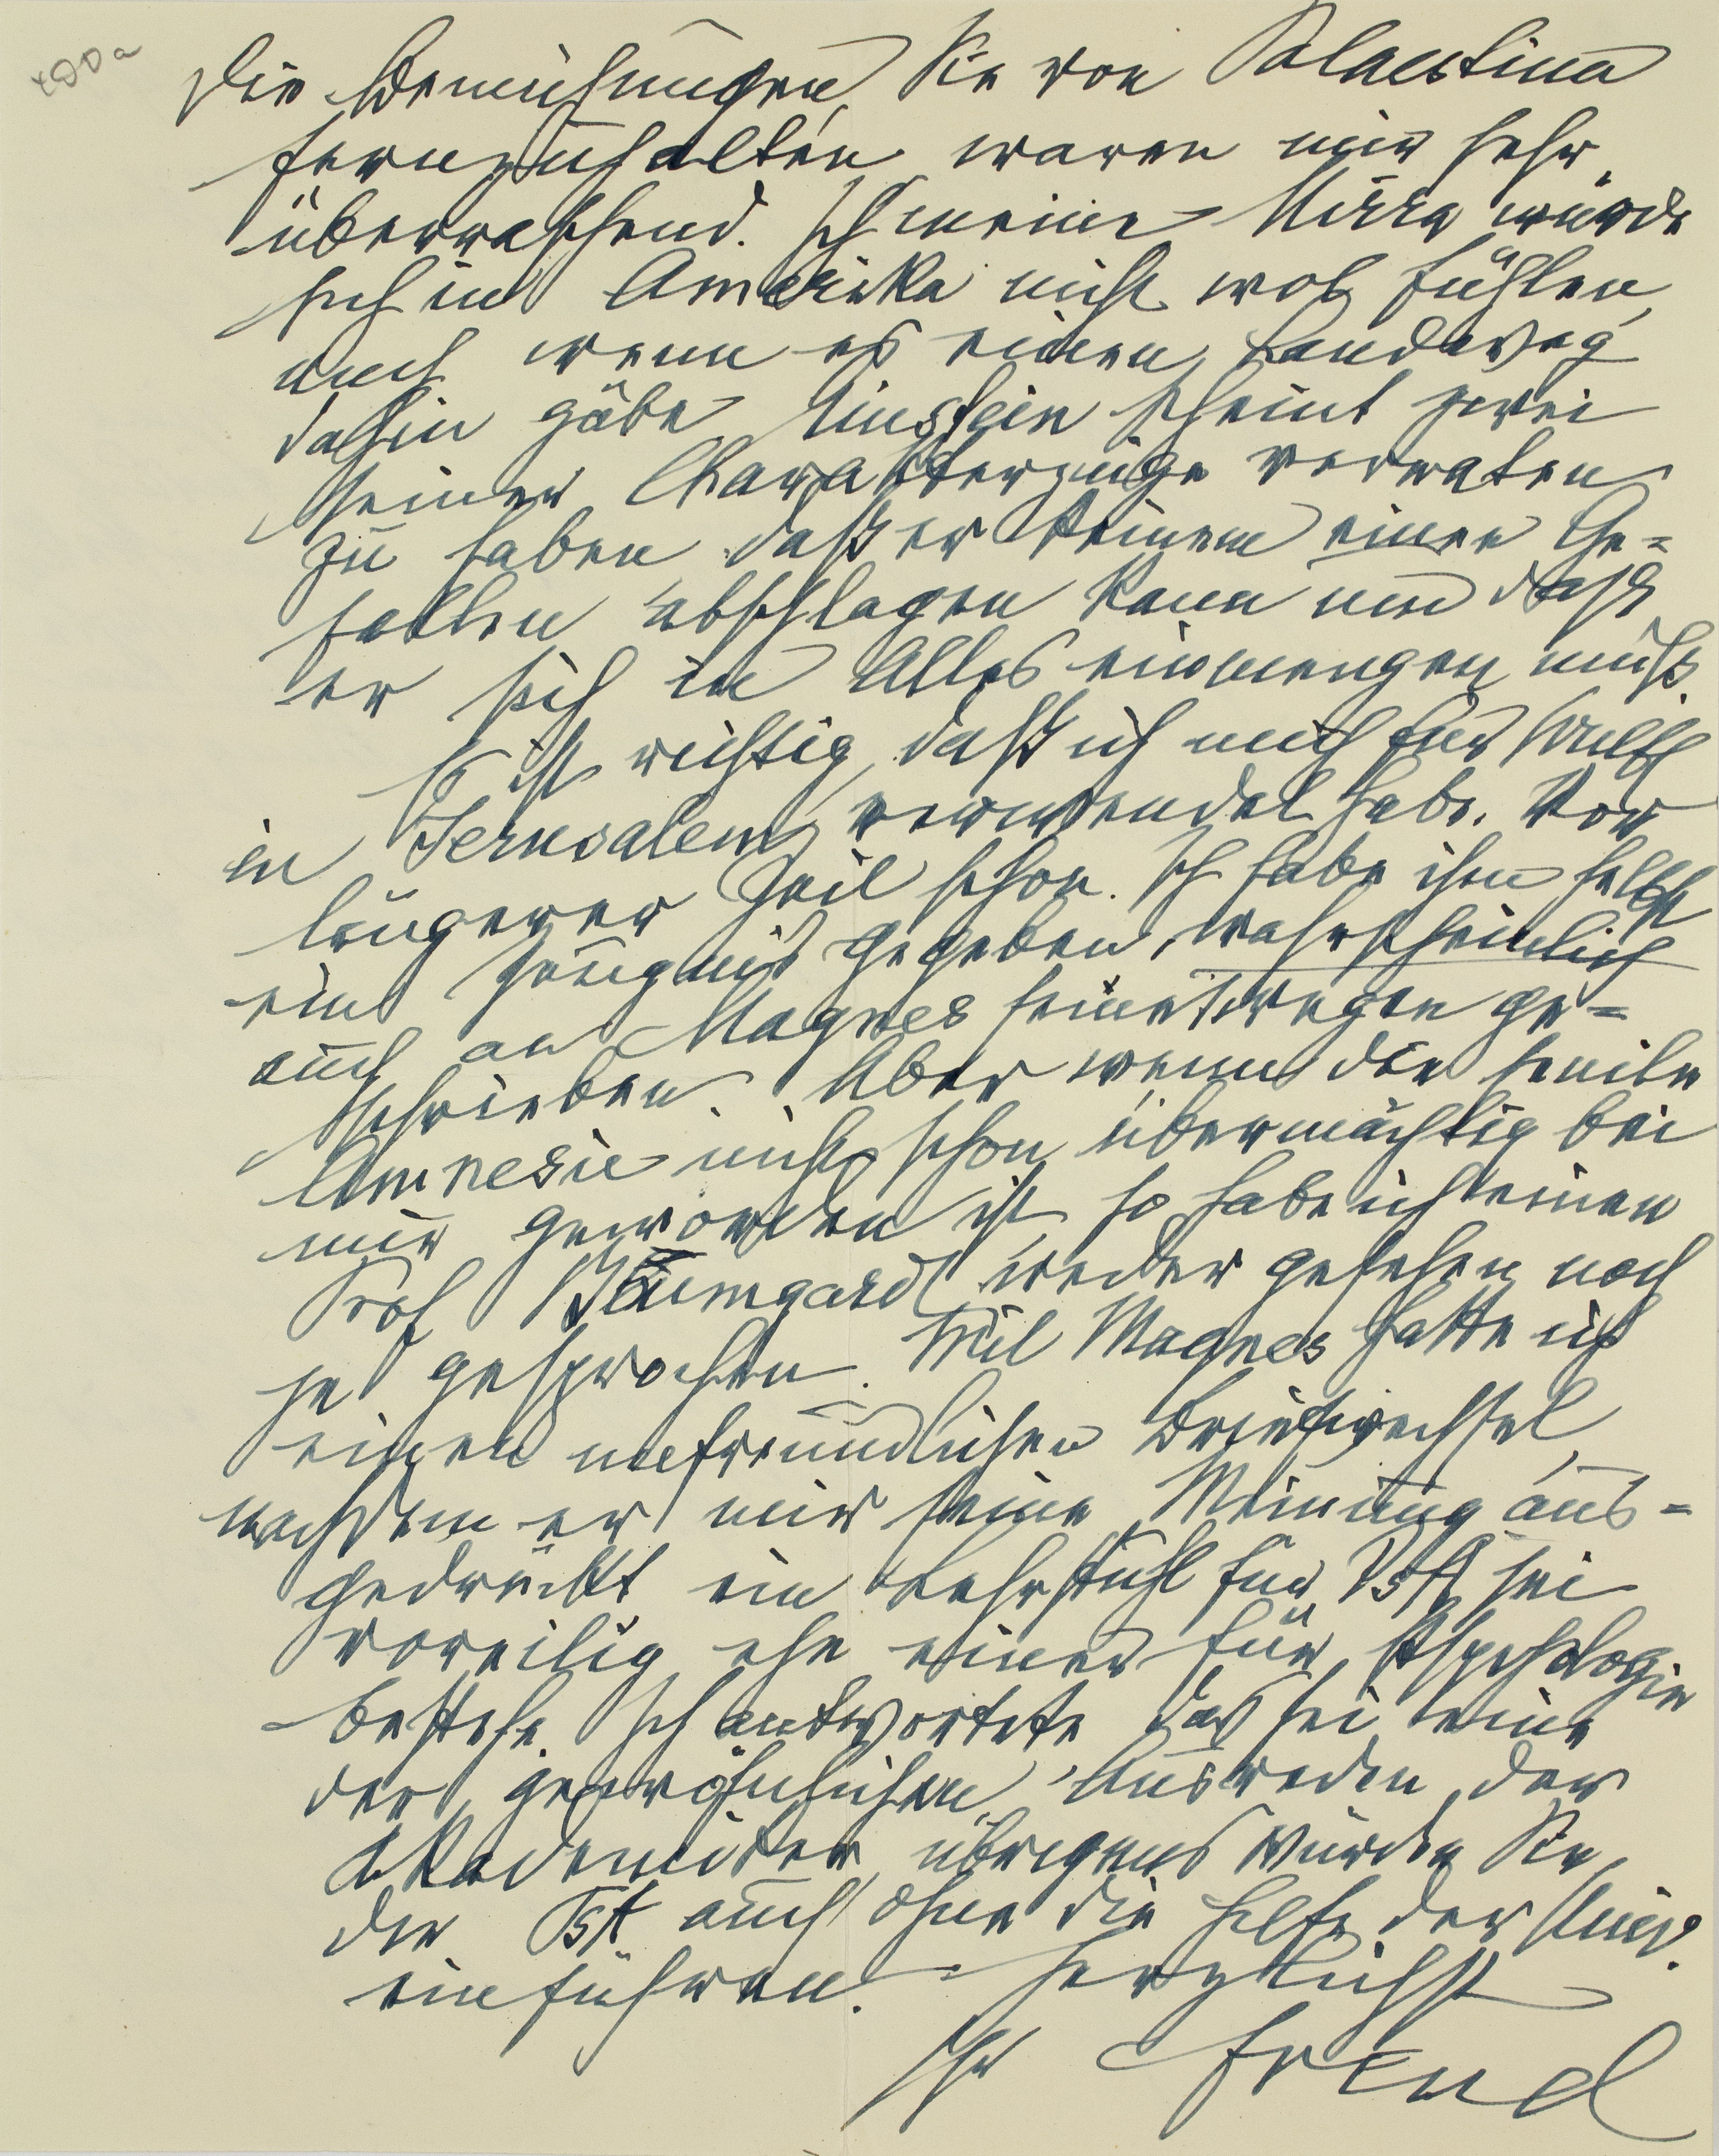 Die Bemühungen, Sie von Palaestina
fernzuhalten, waren mir sehr
überraschend. Ich meine Mirra würde
sich in Amerika nicht wol fühlen,
auch wenn es einen Landweg
dahin gäbe. Einstein scheint zwei
seiner Charakterzüge verraten
zu haben, daß er keinem einen Ge=
fallen abschlagen kann und daß
er sich in Alles einmengen muß.
Es ist richtig, daß ich mich für Wulff
in Jerusalem verwendet habe. Vor
längerer Zeit schon. Ich habe ihm selbst
ein Zeugnis gegeben, wahrscheinlich
auch an Magnes seinetwegen ge=
schrieben. Aber wenn die senile
Amnesie nicht schon übermächtig bei
mir geworden ist, so habe ich einen
Prof Baumgard weder gesehen noch
je gesprochen. Mit Magnes hatte ich
einen unfreundlichen Briefwechsel,
nachdem er mir seine Meinung aus=
gedrückt ein Lehrstuhl für PsA sei
voreilig ehe einer für Psychologie
bestehe. Ich antwortete das sei eine
der gewöhnlichen Ausreden der
Akademiker, übrigens würden Sie
die PsA auch ohne die Hilfe der Univ.
einführen. Herzlichst
Ihr Freud